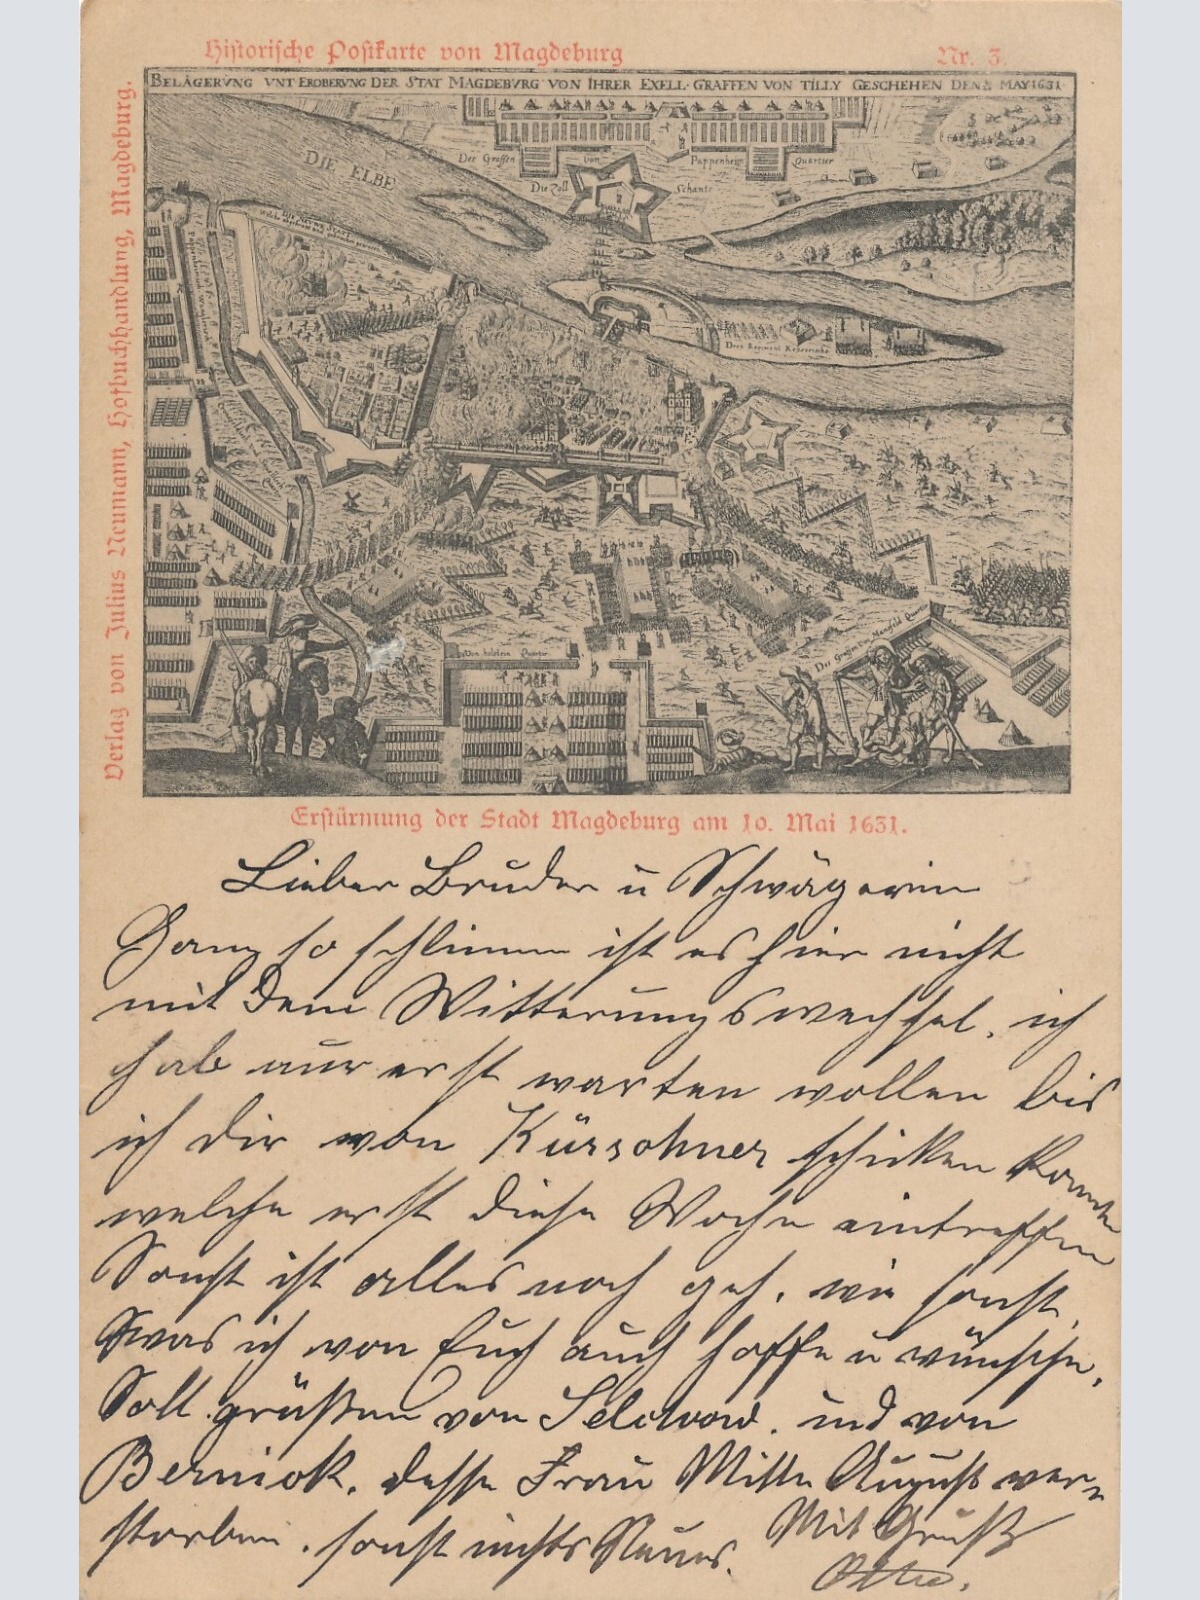 Historische Postkarte von Magdeburg
Nr. 3.
Verlag von Julius Neumann, Hofbuchhandlung, Magdeburg.
BELÄGERVNG VNT EROBERVNG DER STAT MAGDEBVRG VON IHRER EXELL. GRAFFEN VON TILLY GESCHEHEN DEN MAY 1631
DIE ELBE
Der Graffen von Pappenheim Quartier
Die Zoll Schantz
DIE NEWE STADT
Von holstein Quartir
Der Graffen von Mansfeld Quartir
Erstürmung der Stadt Magdeburg am 10. Mai 1631.
Lieber Bruder u Schwägerin
Ganz so schlimm ist es hier nicht
mit dem Witterungswechsel. ich
hab nur erst warten wollen bis
ich dir von Kürschner schicken konnte
welche erst diese Woche eintreffen
Sonst ist alles noch wie sonst.
was ich von Euch auch hoffe u wünsche.
Soll grüßen von und von
Berniok. desse Frau Mitte August ver-
storben. sonst nichts Neues. Mit Gruß
Otto.